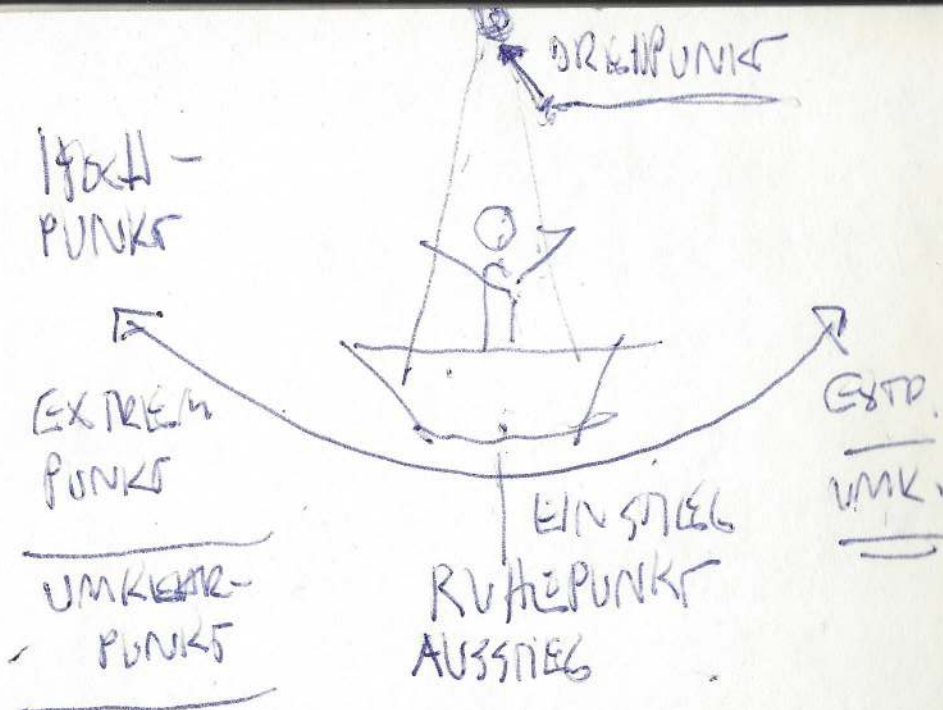 DREHPUNKT
HOCH-
PUNKT
EXTREM
PUNKT
UMKEHR-
PUNKT
EINSTIEG
RUHEPUNKT
AUSSTIEG
EXTR.
UMK.